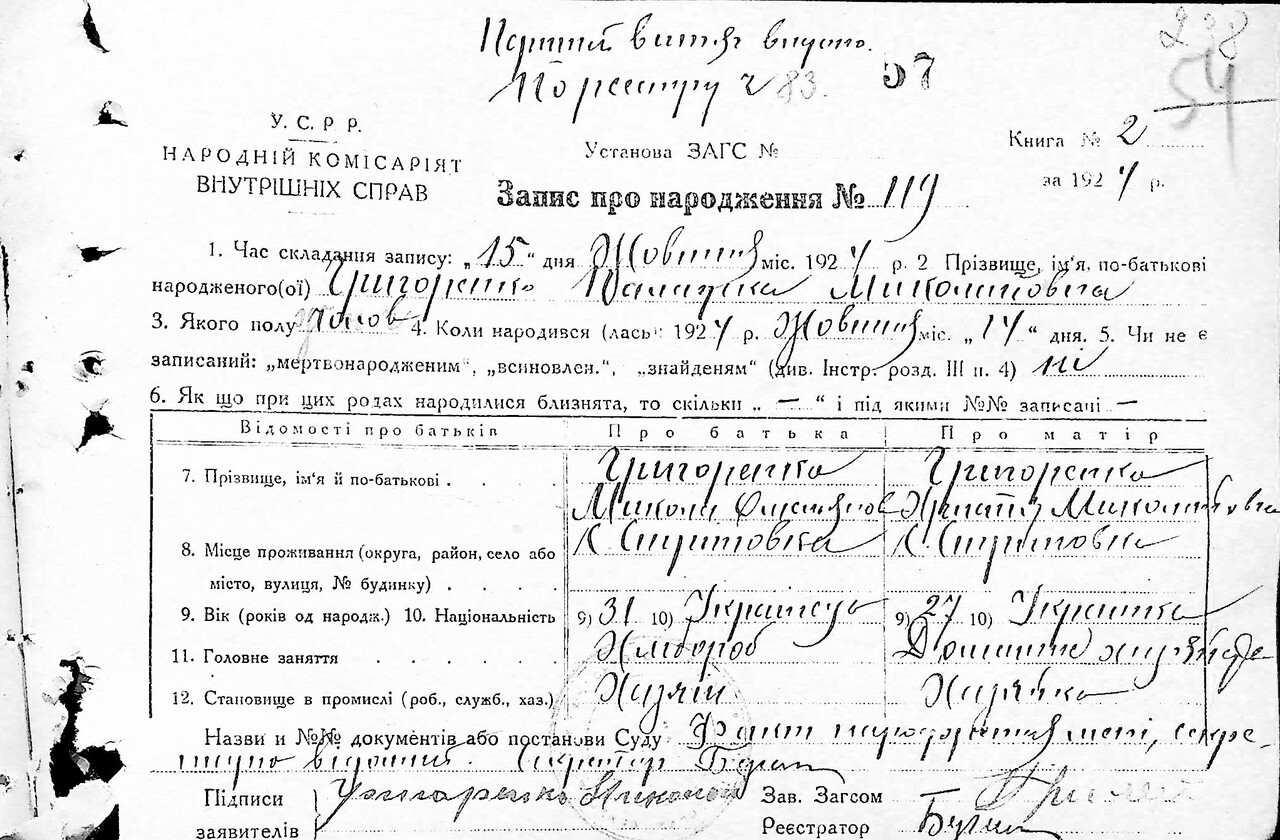 Перший витяг видано.
По реєстру ч 83. 57
238
54
У. С. Р. Р.
НАРОДНІЙ КОМІСАРІЯТ
ВНУТРІШНІХ СПРАВ
Установа ЗАГС №
Книга № 2
за 1924 р.
Запис про народження № 119
1. Час складання запису: „15“ дня Жовтня міс. 1924 р. 2 Прізвище, ім‘я, по-батькові
народженого(ої) Григоренко Палажка Миколаївна
3. Якого полу 4. Коли народився (лась) 1924 р. Жовтня міс. „14“ дня. 5. Чи не є
записаний: „мертвонародженим“, „всиновлен.“, „знайденям“ (див. Інстр. розд. III п. 4) ні
6. Як що при цих родах народилися близнята, то скільки „ — “ і під якими №№ записані —
Відомості про батьків Про батька Про матір
7. Прізвище, ім‘я й по-батькові . . . . Григоренко Григоренко
Микола Миколаївна
8. Місце проживання (округа, район, село або
місто, вулиця, № будинку) . . . .
9. Вік (років од народж.) 10. Національність 9) 31 10) Українець 9) 27 10) Українка
11. Головне заняття . . . . . . Хлібороб Домашне
12. Становище в промислі (роб., служб., хаз.) Хазяїн Хазяйка
Назви и №№ документів або постанови Суду Факт народження мені, секре-
тарю відомий. Секретар
Підписи Григоренко Микола Зав. Загсом
заявителів Реєстратор